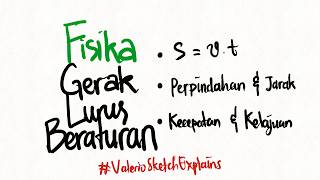 Fisika
Gerak
Lurus
Beraturan
• S = v.t
• Perpindahan & Jarak
• Kecepatan & Kelajuan
#ValerioSketchExplains